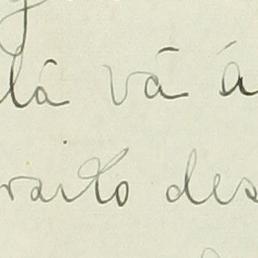 lá vá á
raito des